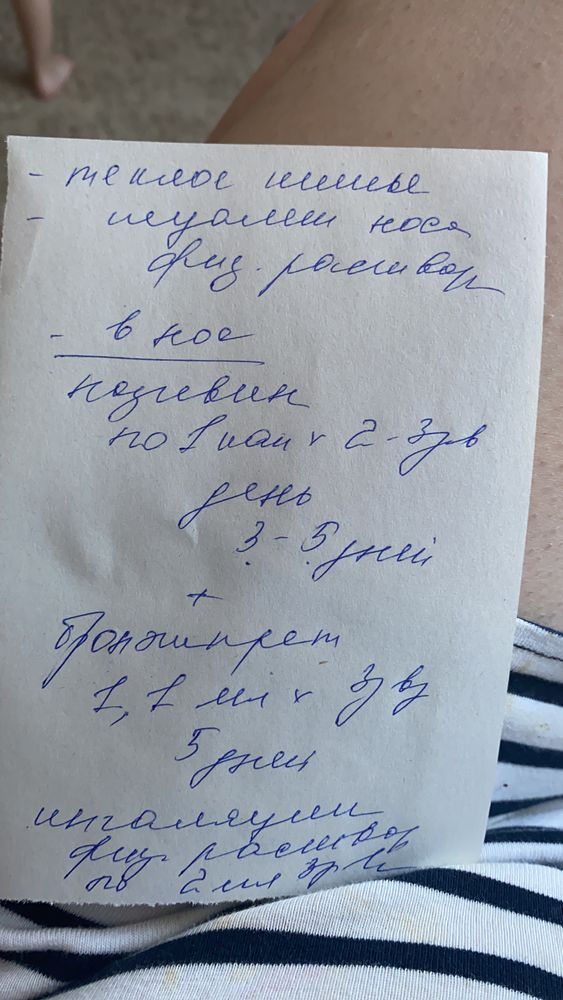 - теплое питье
- туалет носа
физ. раствор
- в нос
називин
по 1 кап x 2-3 р в
день
3-5 дней
+
Бронхипрет
1,1 мл x 3 р в
5 дней
ингаляции
физ. раствор
по 2 мл 3 р